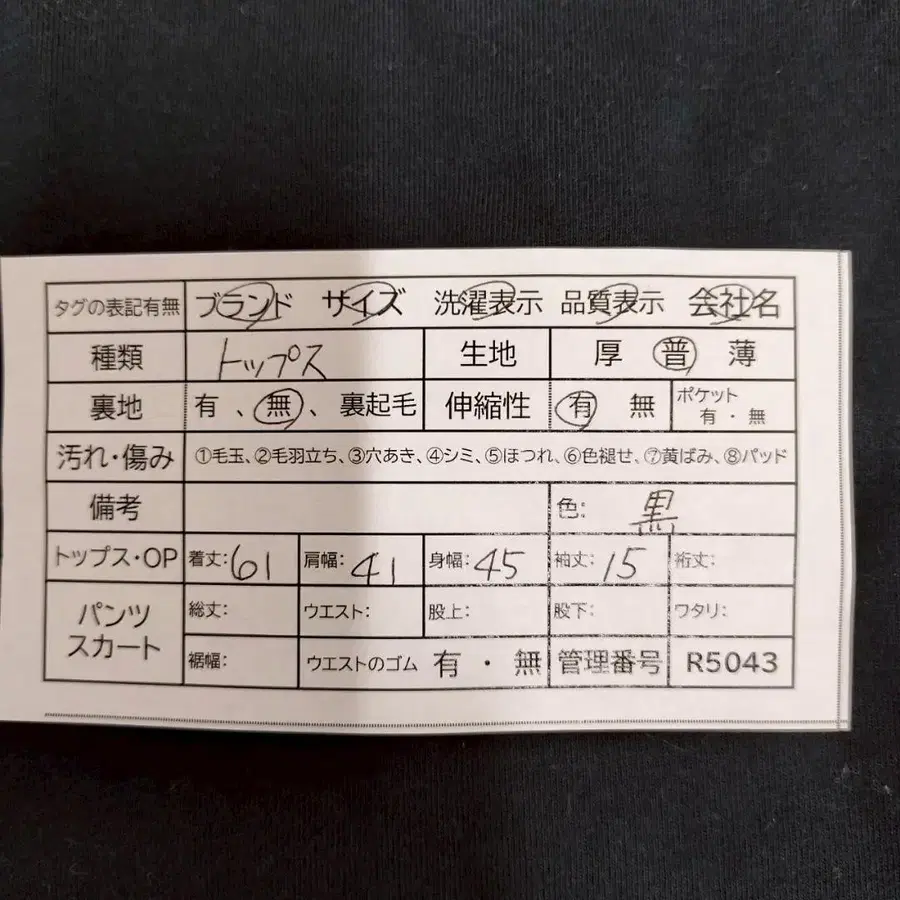 タグの表記有無 ブランド サイズ 洗濯表示 品質表示 会社名
種類 トップス 生地 厚 普 薄
裏地 有 、無、裏起毛 伸縮性 有 無 ポケット 有・無
汚れ・傷み ①毛玉、②毛羽立ち、③穴あき、④シミ、⑤ほつれ、⑥色褪せ、⑦黄ばみ、⑧パッド
備考 色: 黒
トップス・OP 着丈:61 肩幅:41 身幅:45 袖丈:15 裄丈:
パンツ スカート 総丈: ウエスト: 股上: 股下: ワタリ:
裾幅: ウエストのゴム 有・無 管理番号 R5043